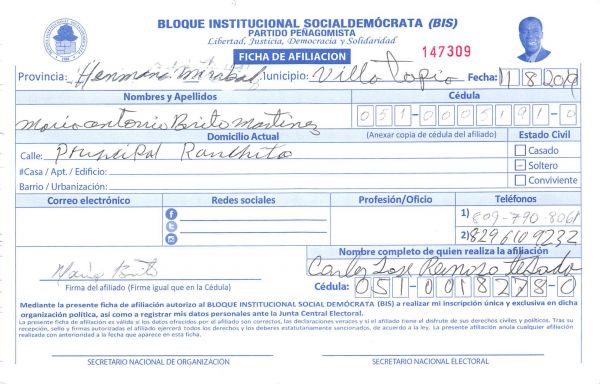 BLOQUE INSTITUCIONAL SOCIALDEMÓCRATA (BIS)
PARTIDO PEÑAGOMISTA
Libertad, Justicia, Democracia y Solidaridad
147309
FICHA DE AFILIACION
Provincia: Hermana Mirabal Municipio: Villa Tapia Fecha: 11 8 2019
Nombres y Apellidos
Cédula
Mario Antonio Brito Martinez
051-0005191-0
Domicilio Actual
(Anexar copia de cédula del afiliado)
Estado Civil
Calle: Principal Ranchito
Casado
#Casa / Apt. / Edificio:
Soltero
Barrio / Urbanización:
Conviviente
Correo electrónico
Redes sociales
Profesión/Oficio
Teléfonos
1) 809-790-8061
2) 829 610 9232
Nombre completo de quien realiza la afiliación
Carlos Jose Reinoso
Firma del afiliado (Firme igual que en la Cédula)
Cédula: 051-0018278-0
Mediante la presente ficha de afiliación autorizo al BLOQUE INSTITUCIONAL SOCIAL DEMÓCRATA (BIS) a realizar mi inscripción única y exclusiva en dicha
organización política, así como a registrar mis datos personales ante la Junta Central Electoral.
La presente ficha de afiliación es válida si los datos ofrecidos por el afiliado son correctos, las declaraciones veraces y si el afiliado tiene el disfrute de sus derechos civiles y políticos. Tras su
recepción, sello y firmas autorizadas el afiliado ejercerá todos los derechos y los deberes estatutariamente sancionados, de acuerdo a la ley. La presente afiliación anula cualquier afiliación
realizada con anterioridad a la fecha que aparece en esta ficha.
SECRETARIO NACIONAL DE ORGANIZACIÓN
SECRETARIO NACIONAL ELECTORAL